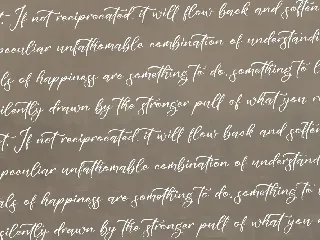 t. If not reciprocated, it will flow back and soften
peculiar unfathomable combination of understandi
ls of happiness are something to do, something to l
silently drawn by the stronger pull of what you r
t. If not reciprocated, it will flow back and softe
peculiar unfathomable combination of understand
als of happiness are something to do, something to
silently drawn by the stronger pull of what you